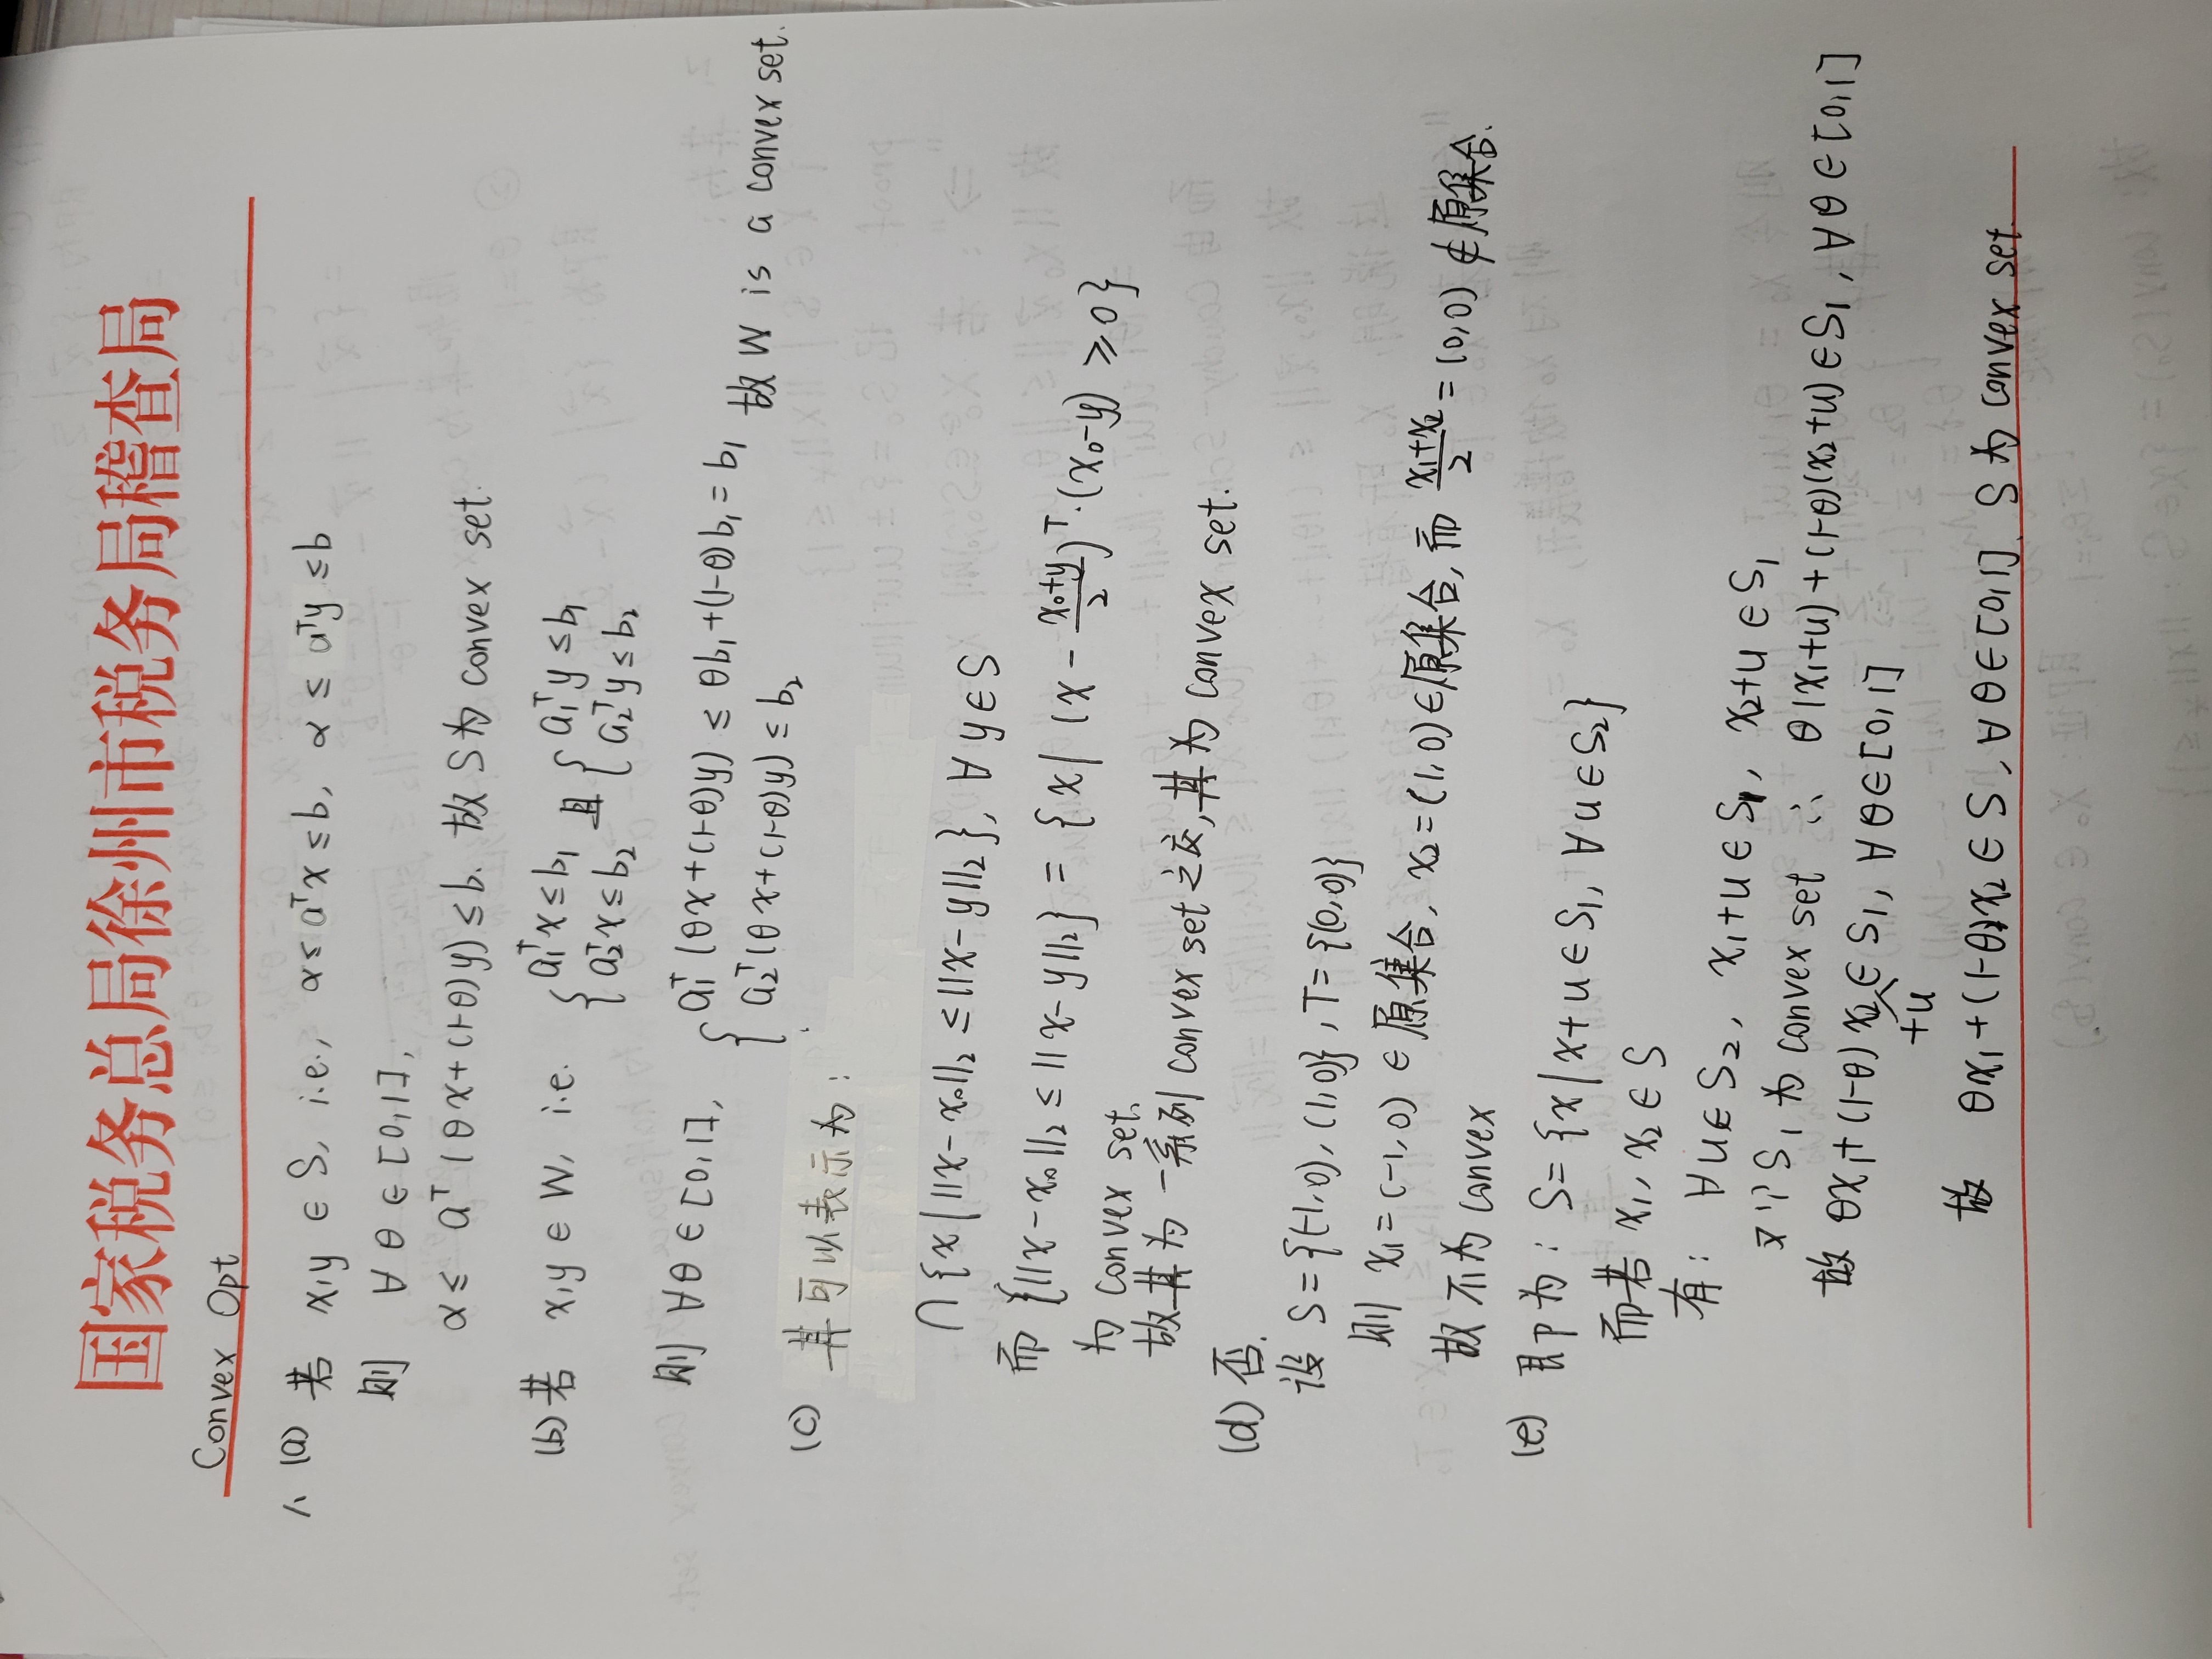 国家税务总局徐州市税务局稽查局
Convex Opt
1、(a) 若 x,y ∈ S, i.e., α ≤ aᵀx ≤ b, α ≤ aᵀy ≤ b
则 ∀ θ ∈ [0,1],
α ≤ aᵀ(θx+(1-θ)y) ≤ b. 故 S 为 convex set.
(b) 若 x,y ∈ W, i.e. { a₁ᵀx ≤ b₁ 且 { a₁ᵀy ≤ b₁
a₂ᵀx ≤ b₂ a₂ᵀy ≤ b₂
则 ∀θ ∈ [0,1], { a₁ᵀ(θx+(1-θ)y) ≤ θb₁+(1-θ)b₁ = b₁
a₂ᵀ(θx+(1-θ)y) ≤ b₂ 故 W is a convex set.
(c) 其可以表示为:
∩{x | ||x-x₀||₂ ≤ ||x-y||₂}, ∀ y ∈ S
而 {||x-x₀||₂ ≤ ||x-y||₂} = {x | (x - (x₀+y)/2)ᵀ·(x₀-y) ≥ 0}
为 convex set.
故其为一系列 convex set 之交,其为 convex set.
(d) 否.
设 S={(-1,0), (1,0)}, T={(0,0)}
则 x₁=(-1,0) ∈ 原集合, x₂=(1,0) ∈ 原集合, 而 (x₁+x₂)/2 = (0,0) ∉ 原集合.
故不为 convex
(e) 即为: S={x | x+u ∈ S₁, ∀u ∈ S₂}
而若 x₁, x₂ ∈ S
有: ∀u ∈ S₂, x₁+u ∈ S₁, x₂+u ∈ S₁
又∵ S₁ 为 convex set ∴ θ(x₁+u)+(1-θ)(x₂+u) ∈ S₁, ∀θ ∈ [0,1]
故 θx₁+(1-θ)x₂ ∈ S₁, ∀θ ∈ [0,1]
+u
故 θx₁+(1-θ)x₂ ∈ S, ∀θ ∈ [0,1]. S 为 convex set.